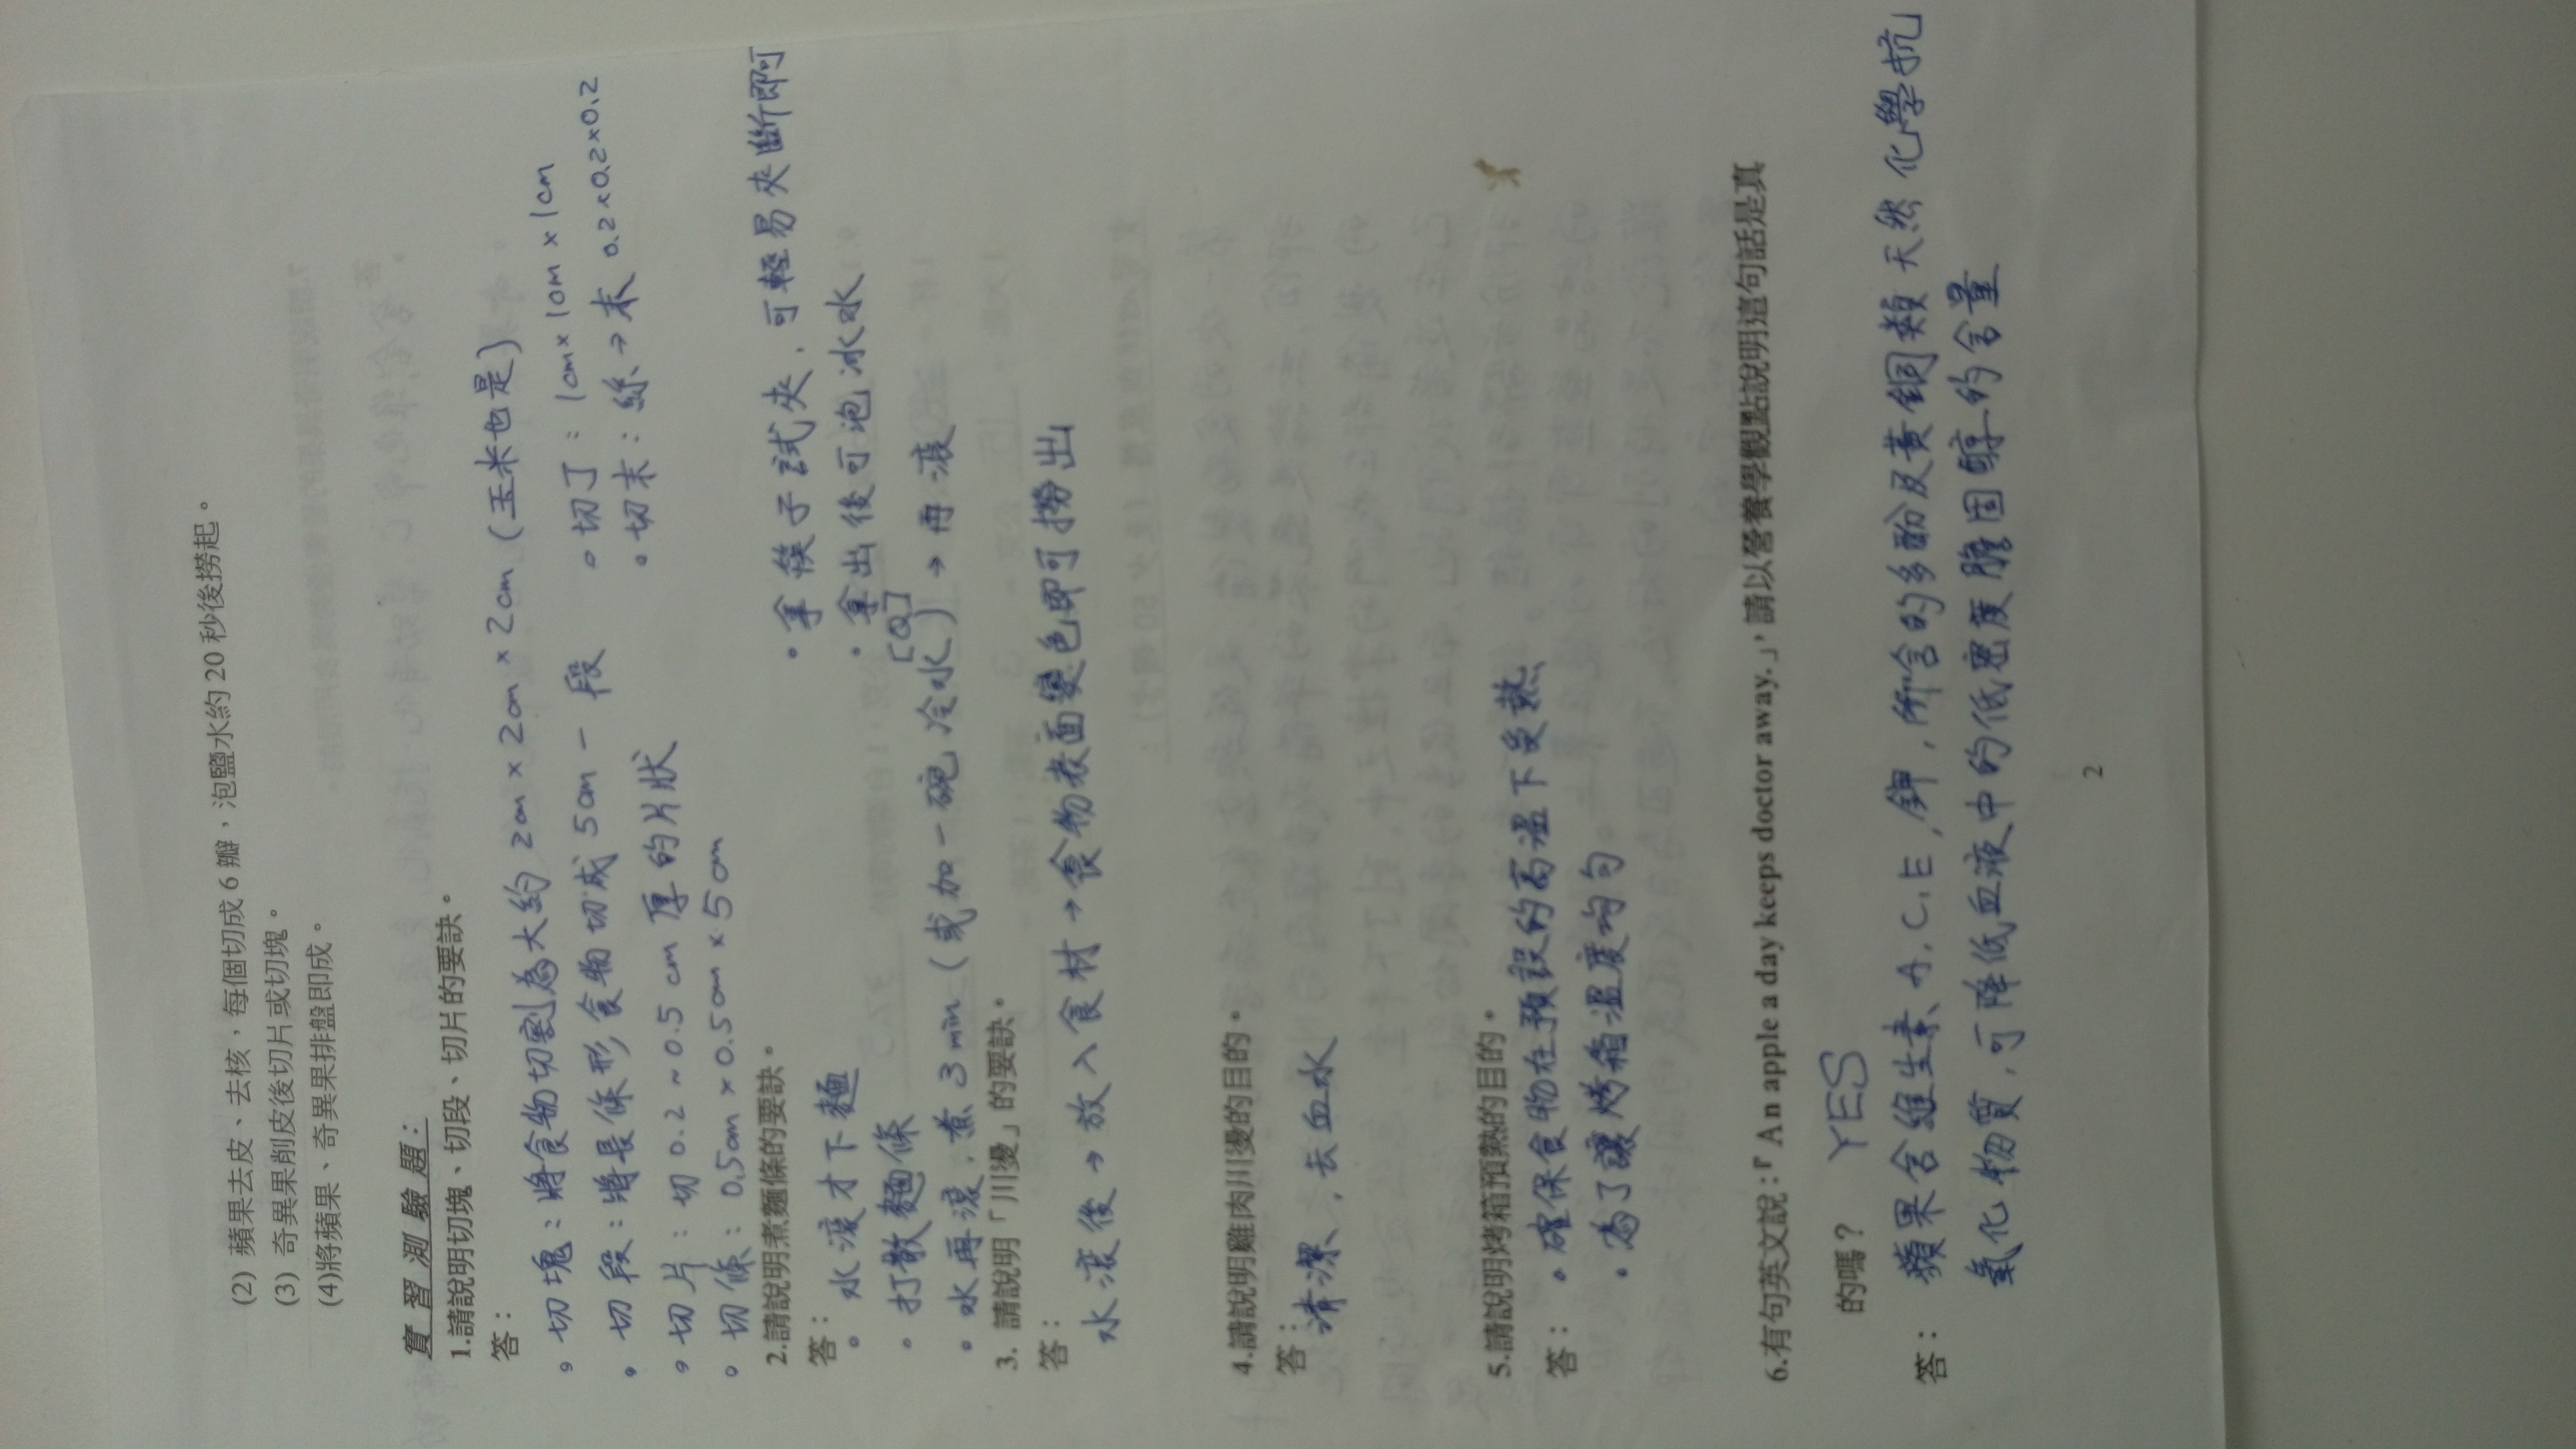 (2) 蘋果去皮、去核，每個切成 6 瓣，泡鹽水約 20 秒後撈起。
(3) 奇異果削皮後切片或切塊。
(4)將蘋果、奇異果排盤即成。
實習測驗題：
1.請說明切塊、切段、切片的要訣。
答：
。切塊：將食物切割為大約 2cm × 2cm × 2cm (玉米也是)
。切段：將長條形食物切成 5cm 一段 。切丁：1cm × 1cm × 1cm
。切片：切 0.2 ~ 0.5 cm 厚的片狀 。切末：絲 → 末 0.2 × 0.2 × 0.2
。切條：0.5cm × 0.5cm × 5cm
2.請說明煮麵條的要訣。
答：
。水滾才下麵 。拿筷子試夾，可輕易夾斷即可
。打散麵條 。拿出後可泡冰水 [Q]
。水再滾，煮 3 min (或加一碗冷水) → 再滾
3. 請說明「川燙」的要訣。
答：
水滾後 → 放入食材 → 食物表面變色即可撈出
4.請說明雞肉川燙的目的。
答：
清潔，去血水
5.請說明烤箱預熱的目的。
答：。確保食物在預設的高溫下受熱
。為了讓烤箱溫度均勻
6.有句英文說：『An apple a day keeps doctor away.』，請以營養學觀點說明這句話是真
的嗎？ YES
答： 蘋果含維生素 A, C, E, 鉀，所含的多酚及黃銅類天然化學抗
氧化物質，可降低血液中的低密度膽固醇的含量
2